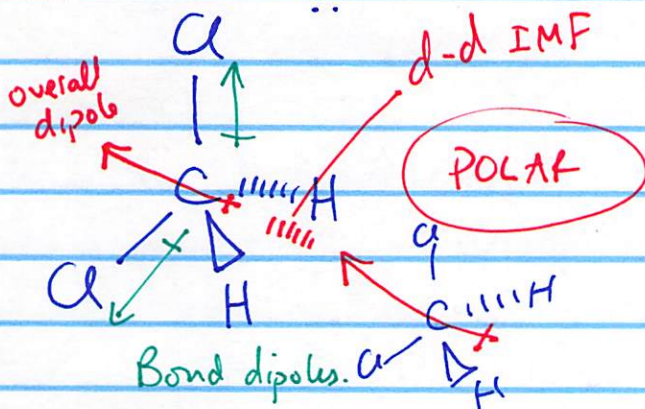 Cl
d-d IMF
overall
dipole
POLAR
C H
Cl
H
Cl
C H
Cl
H
Bond dipoles.